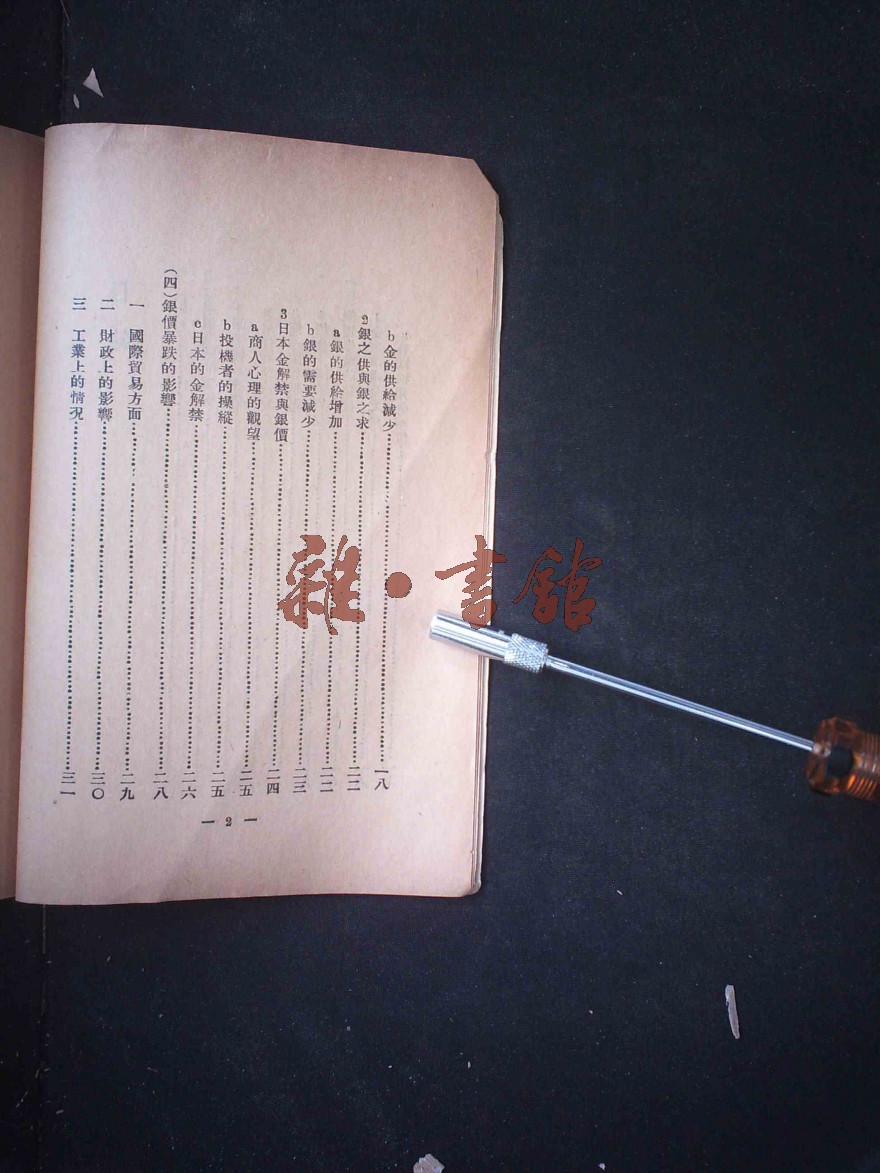 b金的供給減少……一八
2銀之供與銀之求……二二
a銀的供給增加……二二
b銀的需要減少……二三
3日本金解禁與銀價……二四
a商人心理的觀望……二五
b投機者的操縱……二五
c日本的金解禁……二六
(四)銀價暴跌的影響……二八
一 國際貿易方面……二九
二 財政上的影響……三〇
三 工業上的情況……三一
— 2 —
雜·書館